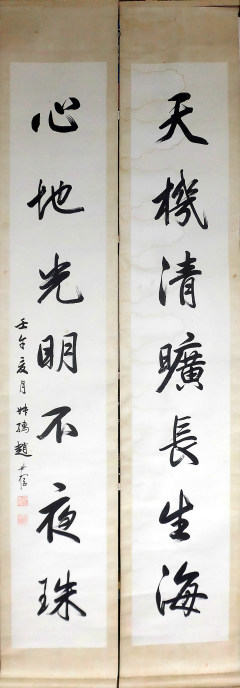 天機清曠長生海
心地光明不夜珠
壬午夏月 叔孺趙